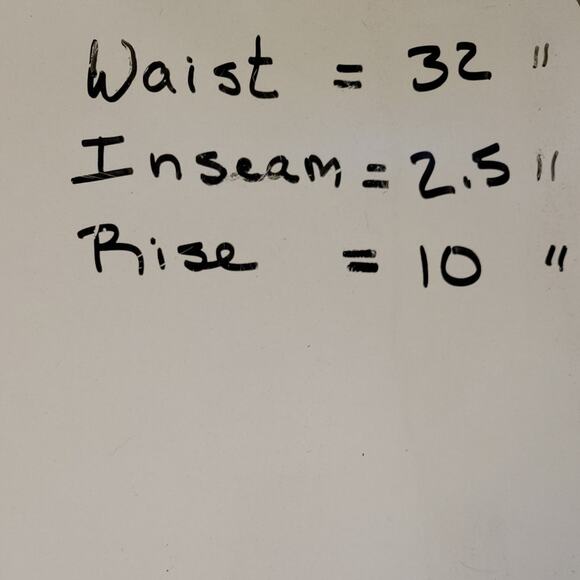 Waist = 32 "
Inseam = 2.5 "
Rise = 10 "